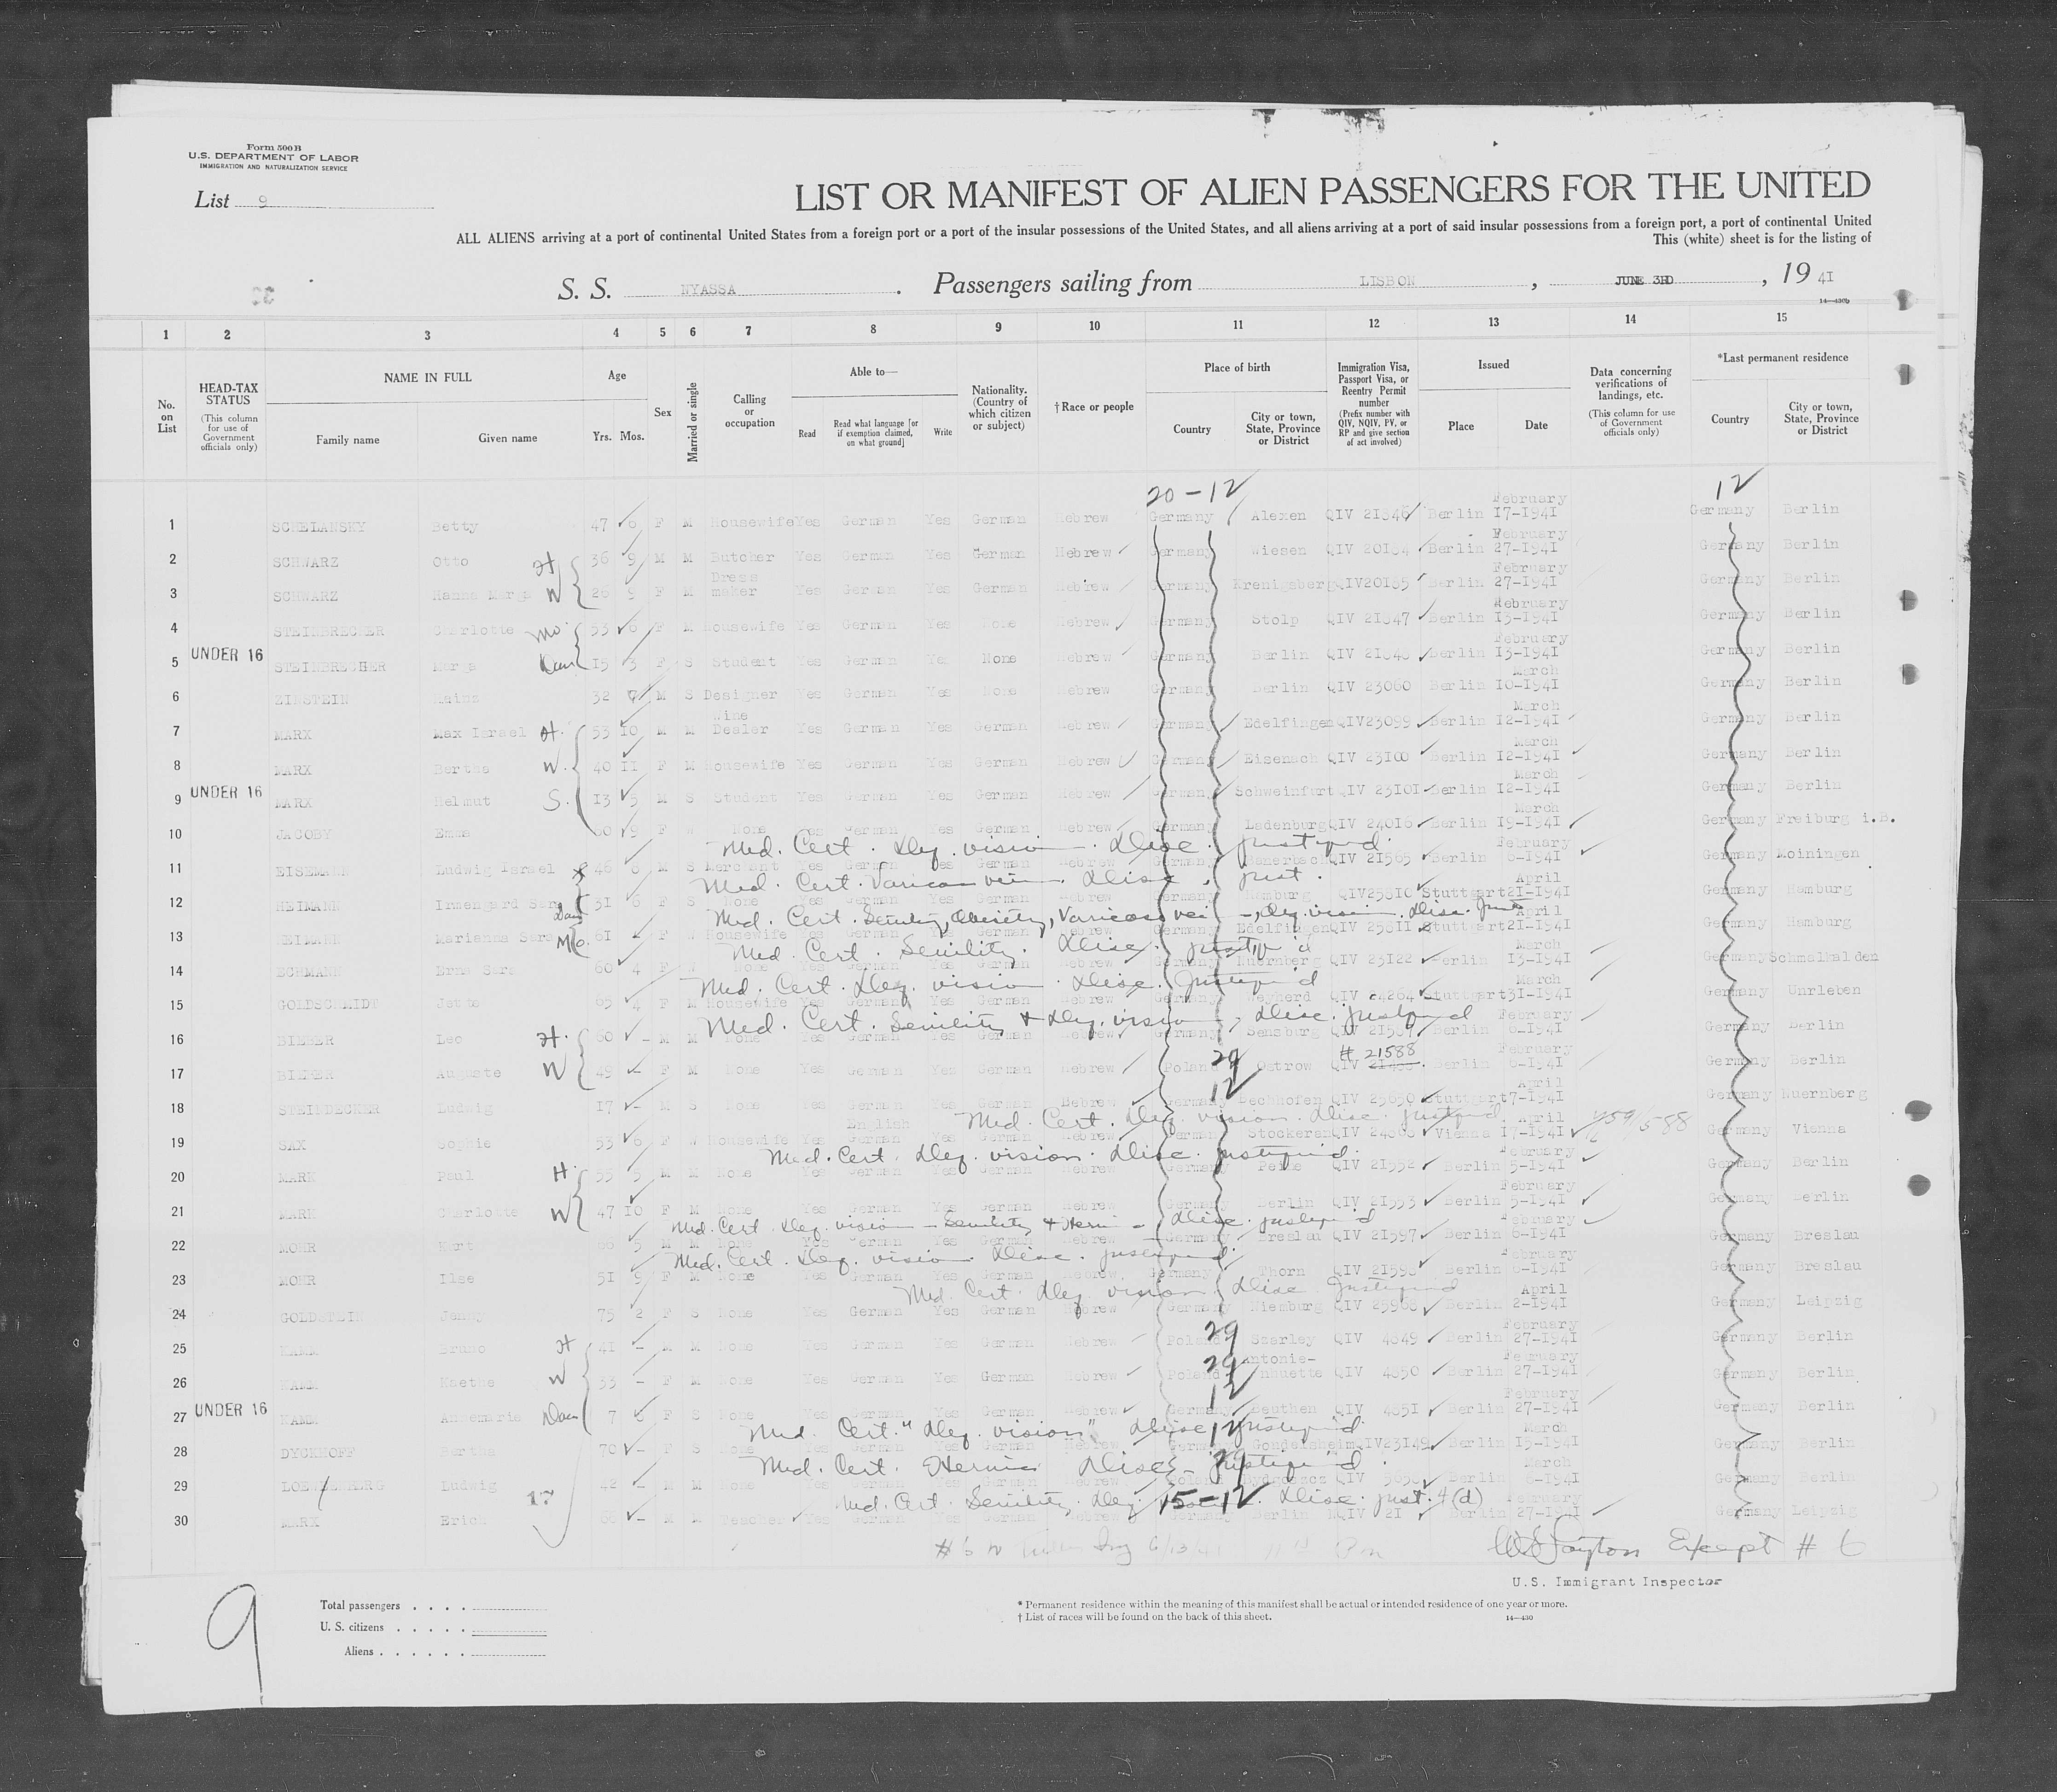 Form 500B
U.S. DEPARTMENT OF LABOR
IMMIGRATION AND NATURALIZATION SERVICE
List 9
LIST OR MANIFEST OF ALIEN PASSENGERS FOR THE UNITED
ALL ALIENS arriving at a port of continental United States from a foreign port or a port of the insular possessions of the United States, and all aliens arriving at a port of said insular possessions from a foreign port, a port of continental United
This (white) sheet is for the listing of
S. S. NYASSA. Passengers sailing from LISBON, JUNE 3RD, 1941
14—430b
1 2 3 4 5 6 7 8 9 10 11 12 13 14 15
No. on List
HEAD-TAX STATUS (This column for use of Government officials only)
NAME IN FULL Family name Given name
Age Yrs. Mos.
Sex
Married or single
Calling or occupation
Able to— Read Read what language [or if exemption claimed, on what ground] Write
Nationality. (Country of which citizen or subject)
†Race or people
Place of birth Country City or town, State, Province or District
Immigration Visa, Passport Visa, or Reentry Permit number (Prefix number with QIV, NQIV, PV, or RP and give section of act involved)
Issued Place Date
Data concerning verifications of landings, etc. (This column for use of Government officials only)
*Last permanent residence Country City or town, State, Province or District
20-12 12
1 SCHELANSKY Betty 47 6 F M Housewife Yes German Yes German Hebrew Germany Alexen QIV 21346 Berlin February 17-1941 Germany Berlin
2 SCHWARZ Otto H 36 9 M M Butcher Yes German Yes German Hebrew Germany Wiesen QIV 20184 Berlin February 27-1941 Germany Berlin
3 SCHWARZ Hanna Marga W 26 9 F M Dress maker Yes German Yes German Hebrew Germany QIV20185 Berlin February 27-1941 Germany Berlin
4 STEINBRECHER Charlotte Mo 53 6 F M Housewife Yes German Yes None Hebrew Germany Stolp QIV 21847 Berlin February 13-1941 Germany Berlin
UNDER 16
5 STEINBRECHER Marga Dau 15 3 F S Student Yes German Yes None Hebrew Germany Berlin QIV 21848 Berlin February 13-1941 Germany Berlin
6 ZINSTEIN Heinz 32 7 M S Designer Yes German Yes None Hebrew Germany Berlin QIV 23060 Berlin March 10-1941 Germany Berlin
7 MARX Max Israel H. 53 10 M M Wine Dealer Yes German Yes German Hebrew Germany Edelfingen QIV23099 Berlin March 12-1941 Germany Berlin
8 MARX Bertha W. 40 11 F M Housewife Yes German Yes German Hebrew Germany Eisenach QIV 23100 Berlin March 12-1941 Germany Berlin
UNDER 16
9 MARX Helmut S. 13 5 M S Student Yes German Yes German Hebrew Germany Schweinfurt QIV 23101 Berlin March 12-1941 Germany Berlin
10 JACOBY Emma 60 9 F W None Yes German Yes German Hebrew Germany Ladenburg QIV 24016 Berlin March 19-1941 Germany Freiburg i.B.
Med. Cert. Def. vision. Disc. justified.
11 EISEMANN Ludwig Israel 46 8 M S Merchant Yes German Yes German Hebrew Germany QIV 21565 Berlin February 6-1941 Germany Moiningen
Med. Cert. Varicose vein. Disc. just.
12 HEIMANN Irmengard Sara Dau 31 6 F S None Yes German Yes German Hebrew Germany Hamburg QIV25810 Stuttgart April 21-1941 Germany Hamburg
Med. Cert. Senility, Obesity, Varicose vein, Def. vision. Disc. Just
13 HEIMANN Marianna Sara Mo. 61 F W Housewife Yes German Yes German Hebrew Germany Edelfingen QIV 25811 Stuttgart April 21-1941 Germany Hamburg
Med. Cert. Senility. Disc. justif'd
14 ECHMANN Erna Sara 60 4 F W None Yes German Yes German Hebrew Germany Nuernberg QIV 23122 Berlin March 13-1941 Germany Schmalkalden
Med. Cert. Def. vision. Disc. Justif'd
15 GOLDSCHMIDT Jette 65 4 F M Housewife Yes German Yes German Hebrew Germany Weyherd QIV 24264 Stuttgart March 31-1941 Germany Unrleben
Med. Cert. Senility & Def. vision, Disc. justif'd
16 BIEBER Leo H. 60 - M M None Yes German Yes German Hebrew Germany Sensburg QIV 21587 Berlin February 6-1941 Germany Berlin
29 # 21588
17 BIEBER Auguste W 49 - F M None Yes German Yes German Hebrew Poland Ostrow QIV Berlin February 6-1941 Germany Berlin
12
18 STEINDECKER Ludwig 17 - M S None Yes German Yes German Hebrew Germany Bechhofen QIV 25650 Stuttgart April 7-1941 Germany Nuernberg
Med. Cert. Def. vision. Disc. justif'd
19 SAX Sophie 53 6 F W Housewife Yes English German Yes German Hebrew Germany Stockeren QIV Vienna April 17-1941 Germany Vienna
Med. Cert. Def. vision. Disc. justif'd.
20 MARK Paul H. 55 5 M M None Yes German Yes German Hebrew Germany Peine QIV 21552 Berlin February 5-1941 Germany Berlin
21 MARK Charlotte W 47 10 F M None Yes German Yes German Hebrew Germany Berlin QIV 21553 Berlin February 5-1941 Germany Berlin
Med. Cert. Def. vision - Senility & Hernia - Disc. justif'd
22 MOHR Kurt 66 5 M M None Yes German Yes German Hebrew Germany Breslau QIV 21597 Berlin February 6-1941 Germany Breslau
Med. Cert. Def. vision. Disc. justif'd.
23 MOHR Ilse 51 9 F M None Yes German Yes German Hebrew Germany Thorn QIV 21598 Berlin February 6-1941 Germany Breslau
Med. Cert. Def. vision. Disc. Justif'd
24 GOLDSTEIN Jenny 75 2 F S None Yes German Yes German Hebrew Germany Niemburg QIV 25968 Berlin April 2-1941 Germany Leipzig
29
25 KAMM Bruno H 41 - M M None Yes German Yes German Hebrew Poland Szarley QIV 4849 Berlin February 27-1941 Germany Berlin
29
26 KAMM Kaethe W 33 - F M None Yes German Yes German Hebrew Poland Antonienhuette QIV 4850 Berlin February 27-1941 Germany Berlin
12
UNDER 16
27 KAMM Annemarie Dau 7 8 F S None Yes German Yes German Hebrew Germany Beuthen QIV 4851 Berlin February 27-1941 Germany Berlin
Med. Cert. "Def. vision" Disc. justif'd 12
28 DYCKHOFF Bertha 70 - F S None Yes German Yes German Hebrew Germany Gondelsheim QIV23149 Berlin March 15-1941 Germany Berlin
Med. Cert. Hernia Disc. justif'd. 29
29 Ludwig 42 - M M None Yes German Yes German Hebrew Poland Bydgoszcz QIV Berlin March 6-1941 Germany Berlin
17
Med. Cert. Senility. Def. 15-12 Disc. just. 4(d)
30 MARX Erich 60 - M M Teacher Yes German Yes German Hebrew Germany Berlin Berlin February 27-1941 Germany Leipzig
# 6 6/13/41
Except # 6
U.S. Immigrant Inspector
9
Total passengers
U. S. citizens
Aliens
* Permanent residence within the meaning of this manifest shall be actual or intended residence of one year or more.
† List of races will be found on the back of this sheet.
14—430